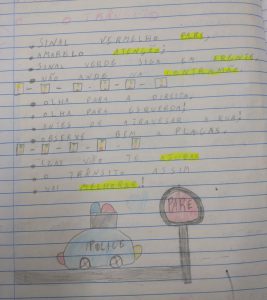 O TRÂNSITO
SINAL VERMELHO PARE,
AMARELO ATENÇÃO!
SINAL VERDE SIGA EM FRENTE,
NÃO ANDE NA CONTRAMÃO.
OLHA PARA A DIREITA,
OLHA PARA ESQUERDA!
ANTES DE ATRAVESSAR A RUA!
OBSERVE BEM A PLACAS,
ELAS VÃO TE AJUDAR
O TRÂNSITO ASSIM
VAI MELHORAR!
POLICE
PARE